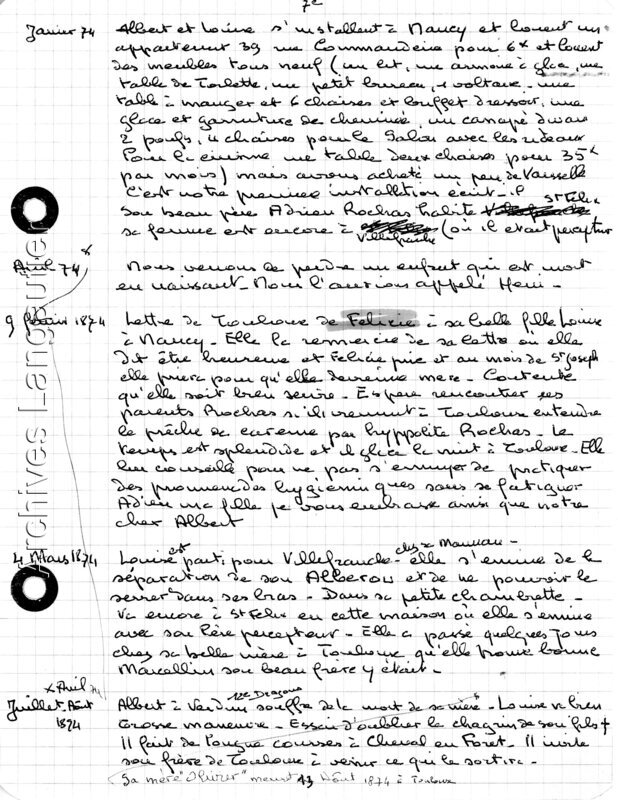 72
Janvier 74 Albert et Louise s'installent à Nancy et louent un
appartement 39 rue Commanderie pour 6* et louent
des meubles tous neuf (un lit, une armoire à glace, une
table de Toilette, un petit bureau, 1 voltaire, une
table à manger et 6 chaises et buffet dressoir, une
glace et garniture de cheminée, un canapé divan
2 poufs, 4 chaises pour le Salon avec les rideaux
Pour la cuisine une table deux chaises pour 35*
par mois) mais avons acheté un peu de vaisselle
C'est notre première installation écrit-il
Son beau père Adrien Rochas habite St Felix
sa femme est encore à Villefranche (où il était percepteur
Avril 74 * Nous venons de perdre un enfant qui est mort
en naissant - Nous l'aurions appelé Henri -
9 février 1874 Lettre de Toulouse de Felicie à sa belle fille Louise
à Nancy - Elle la remercie de sa lettre où elle
dit être heureuse et Felicie prie et au mois de St Joseph
elle priera pour qu'elle devienne mère - Contente
qu'elle soit bien servie - Espère rencontrer ses
parents Rochas s'ils viennent à Toulouse entendre
le prêche de carême par hyppolite Rochas - Le
temps est splendide et il glace la nuit à Toulouse - Elle
leur conseille pour ne pas s'ennuyer de pratiquer
des promenades hygiéniques sans se fatiguer
Adieu ma fille je vous embrasse ainsi que notre
cher Albert
4 Mars 1874 Louise est parti pour Villefranche - chez sa Maman - elle s'ennuie de la
séparation de son Alberou et de ne pouvoir le
serrer dans ses bras - Dans sa petite chambrette -
Va encore à St Felix en cette maison où elle s'ennuie
avec son Père percepteur - Elle a passé quelques jours
chez sa belle mère à Toulouse qu'elle trouve bonne
Marcellin son beau frère y était -
* Avril 74
Juillet, Août 1874 Albert à Verdun 12e Dragons souffre de la mort de sa mère - Louise va bien
Grosse manœuvre - Essai d'oublier le chagrin de son fils †
Il fait de longue courses à Cheval en Foret - Il invite
son frère de Toulouse à venir ce qui le sortira -
Sa mère meurt 13 Août 1874 à Toulouse
Archives Languller